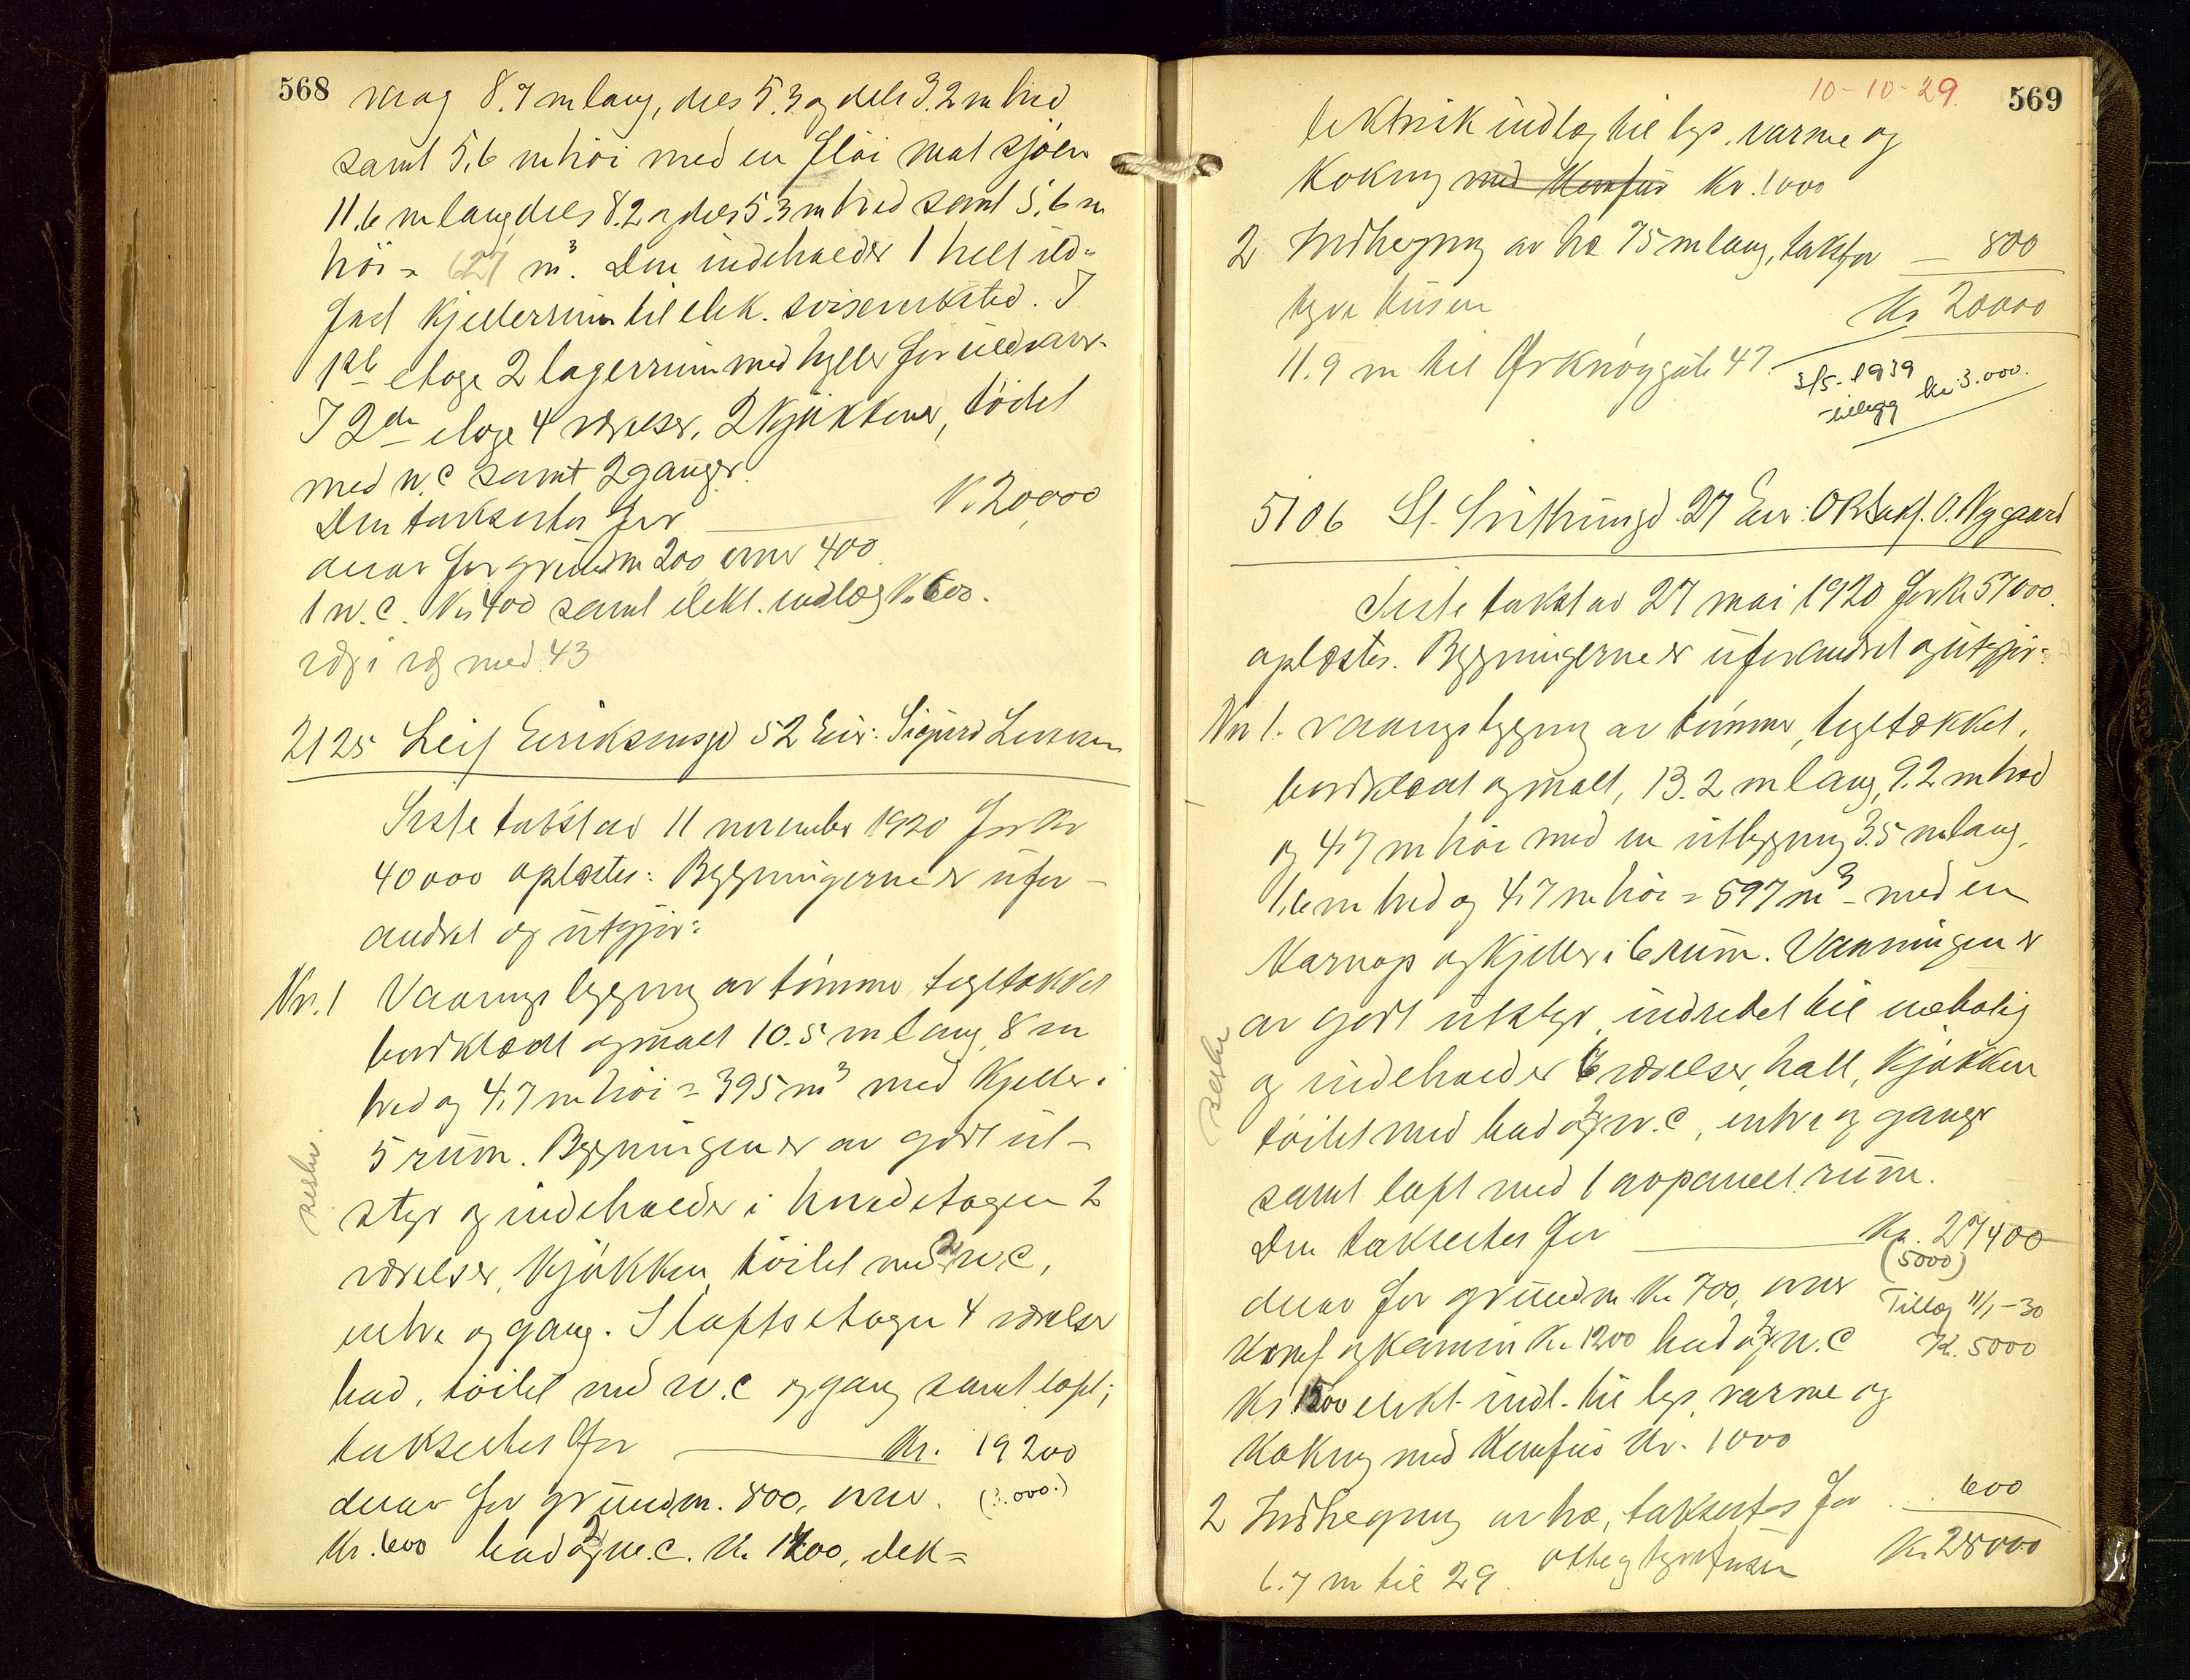 568
vaag 8.7 m lang, dels 5.3 og dels 3.2 m bred
samt 5,6 m höi med en flöi mot sjöen
11.6 m lang, dels 8.2 og dels 5.3 m bred samt 5,6 m
höi = 627 m³. Den indeholder 1 helt ild-
fast kjellerrum til elek. sveiseverksted. I
1ste etage 2 lagerrum med hyller for uldvarer.
I 2den etage 4 værelser, 2 kjökkener, töilet
med w.c samt 2 ganger.
Den taksertes for Kr 20,000
derav for grundm 200, ovner 400
1 w.c. Kr 400 samt elekt. indlæg Kr 600.
væg i væg med 43
2125 Leif Eriksensgd 52 Eier: Sigurd
Siste takst av 11 november 1920 for Kr
40000 oplæstes: Bygningerne er ufor-
andret og utgjør:
Nr. 1 Vaaningsbygning av tømmer tegltækket
bordklædt og malt 10.5 m lang, 8 m
bred og 4,7 m höi = 395 m³ med kjeller i
5 rum. Bygningen er av godt ut-
styr og indeholder i hovedetagen 2
værelser, kjökken, töilet med 2 w.c,
entre og gang. I loftsetagen 4 værelser
bad, töilet med w.c og gang samt loft;
taksertes for Kr. 19200
derav for grundm. 800, ovner. (3.000.)
Kr. 600 bad og 2 w.c. Kr 1200, elek=
569
10-10-29.
lektrisk indlæg til lys, varme og
kokning med Komfur Kr. 1000
2 Indhegning av træ 75 m lang, takst for — 800
Kr 20000
11.9 m til Ørknøygate 47.
3/5-1939
tillegg kr 3.000.
5106 St. Svithunsgd. 27 Eier: O.R.Sakf. O. Nygaard
Siste takst av 27 mai 1920 for Kr 57000.
oplæstes. Bygningerne er uforandret og utgjør:
Nr 1. Vaaningsbygning av tømmer, tegltækket,
bordklædt og malt, 13.2 m lang, 9.2 m bred
og 4,7 m höi med en utbygning 3.5 m lang,
1,6 m bred og 4,7 m höi = 597 m³ – med en
Karnap og kjeller i 6 rum. Vaaningen er
av godt utstyr, indredet til enebolig
og indeholder 6 værelser, hall, kjökken
töilet med bad og 2 w.c, entre og ganger
samt loft med 1 avpanelt rum.
Den taksertes for Kr. 27400
(5000)
derav for grundm. Kr 700, ovner
Tillæg 11/1-30
Komf. og kamin Kr. 1200 bad og 2 w.c
Kr. 5000
Kr 1500 elekt. indl. til lys, varme og
Kokning med Komfur Kr. 1000
2 Indhegning av træ, taksertes for 600
Kr. 28000
6.7 m til 29.